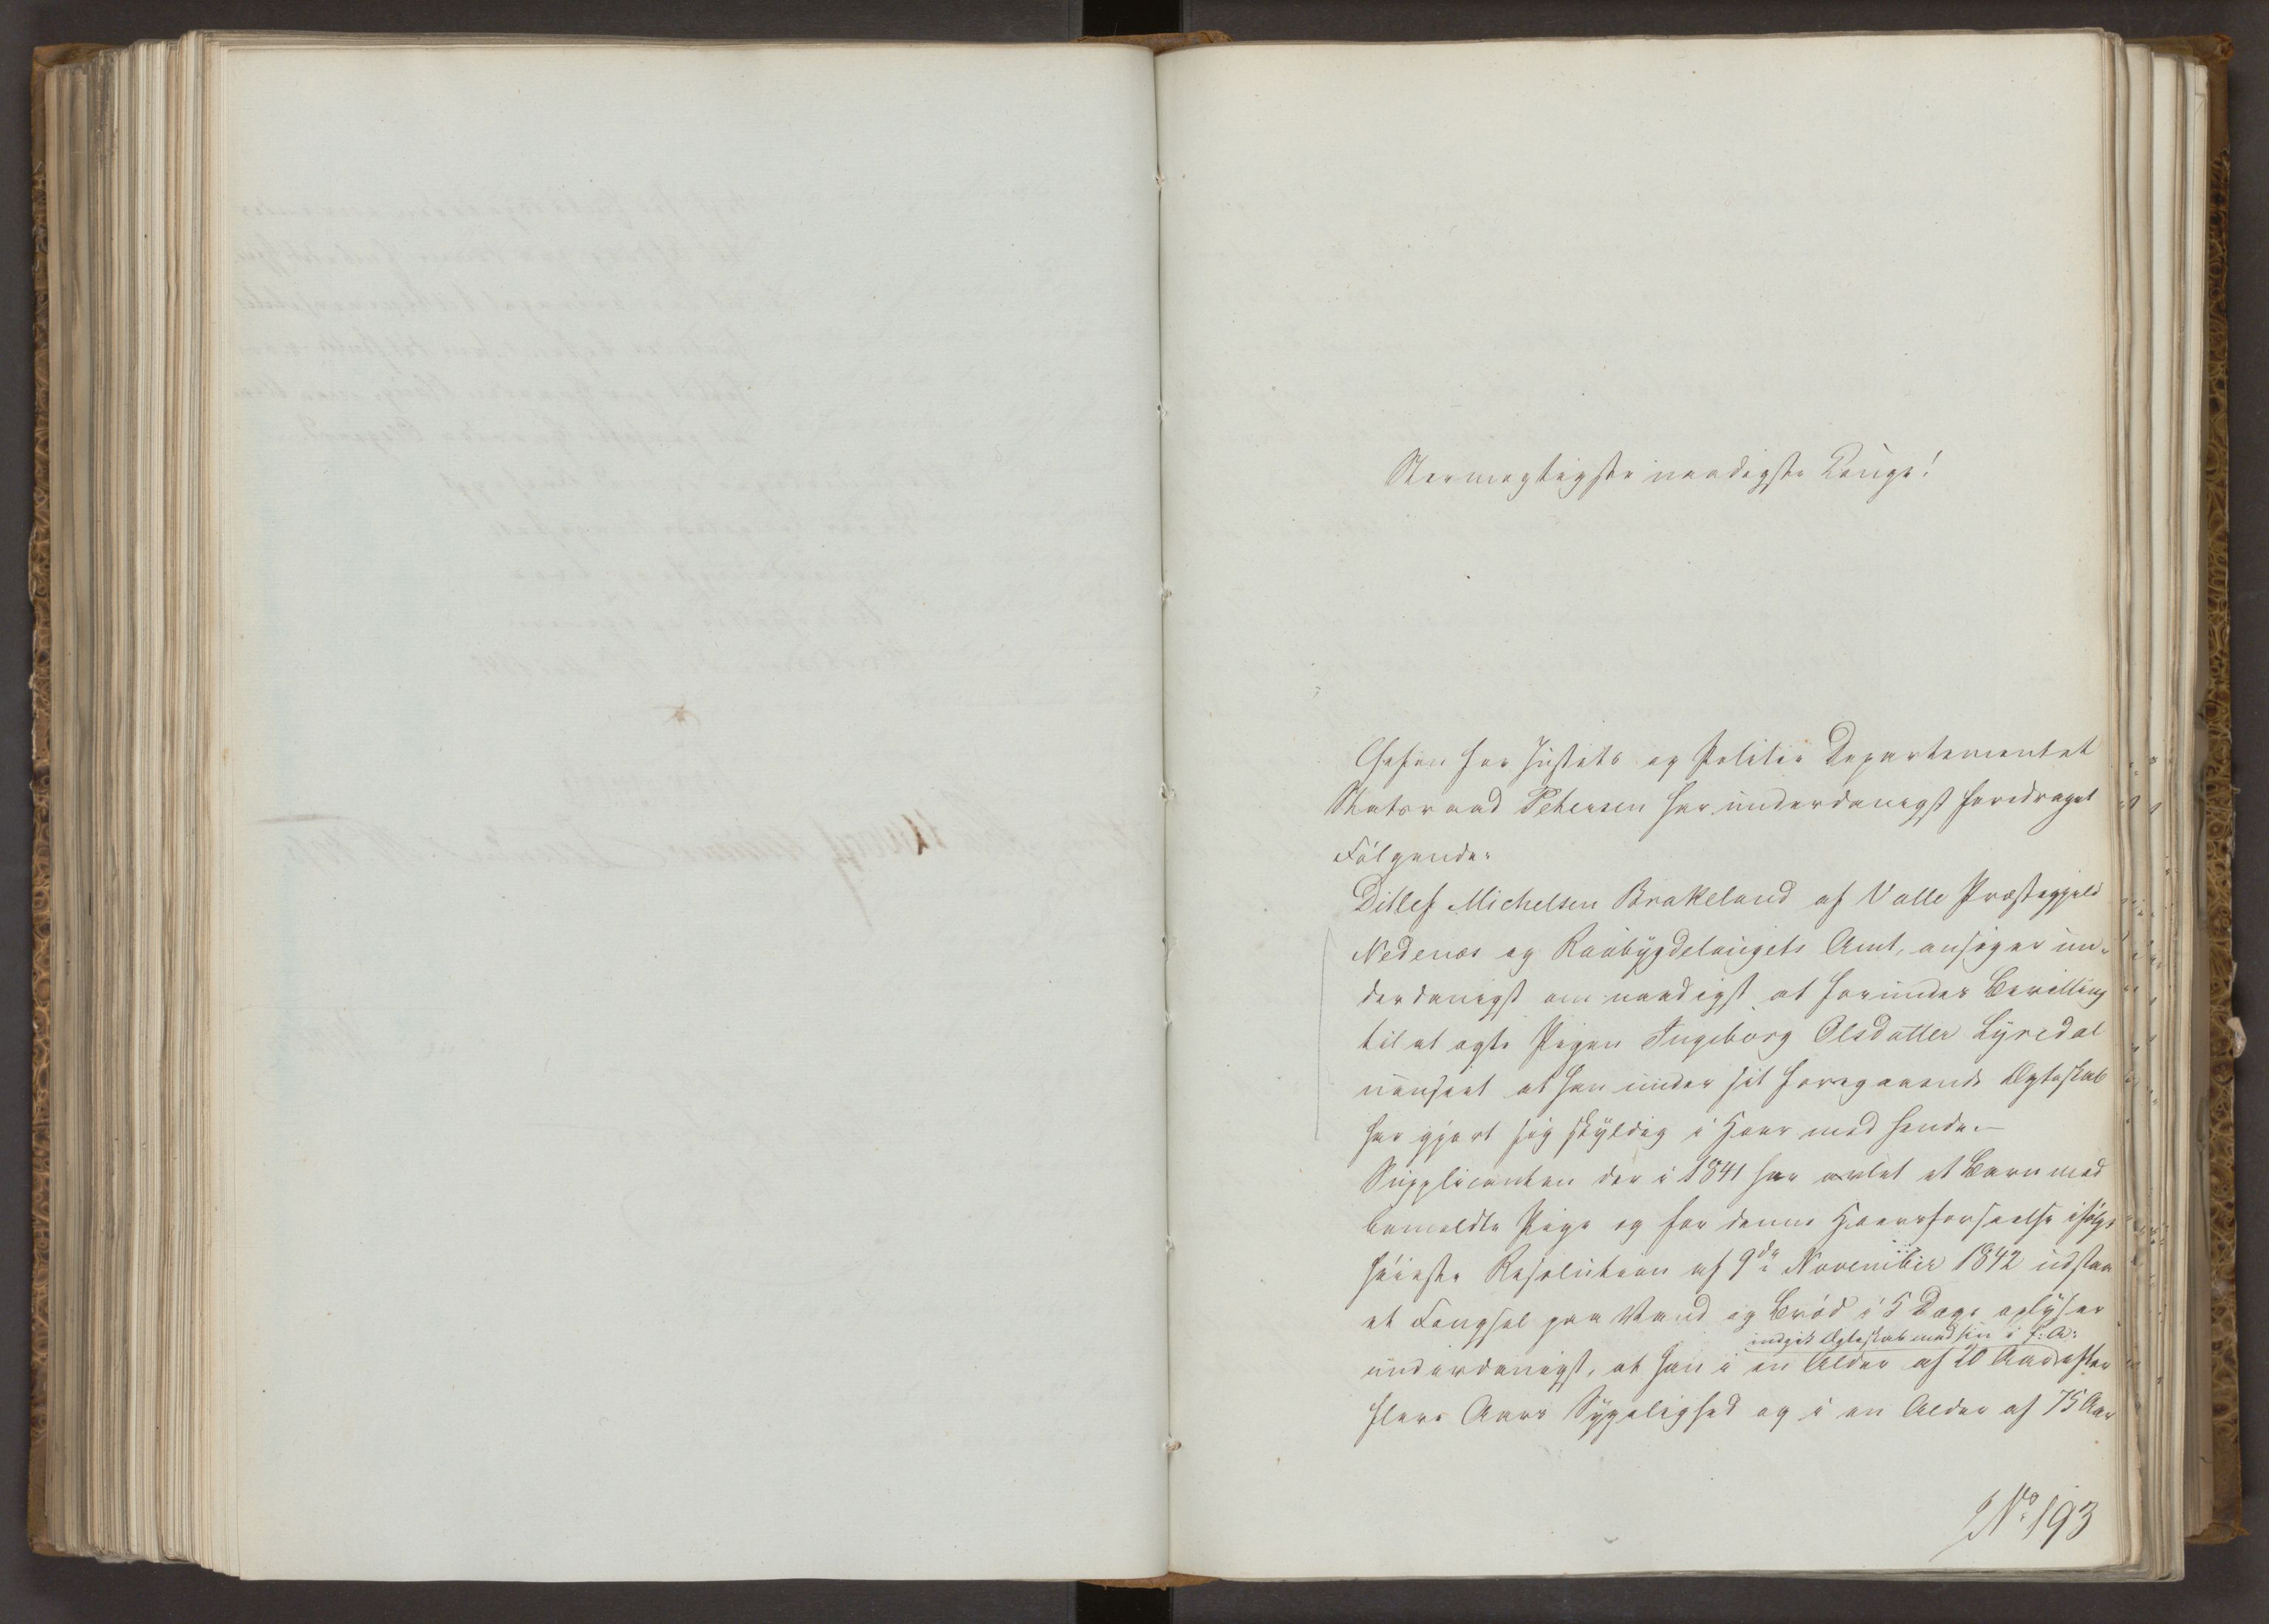 Stormægtigste naadigste Konge!
Chefen for Justits og Politie Departementet
Statsraad Petersen har underdanigst foredraget
Følgende:
Ditlef Michelsen Brakeland af Valle Præstegjeld
Nedenæs og Raabygdelaugets Amt, ansøger un-
derdanigst om naadigst at forundes Bevilling
til at ægte Pigen Ingeborg Olsdatter Lyredal
uanseet at han under sit foregaaende Ægteskab
har gjort sig skyldig i Hoer med hende.-
Supplicanten der i 1841 har avlet et Barn med
bemeldte Pige og for denne Hoersforseelse ifølge
høieste Resolution af 9de November 1842 udstaa
et Fængsel paa Vand og Brød i 5 Dage oplyser
indgik Ægteskab med sin i f: A:
underdanigst, at han i en Alder af 20 Aar efter
flere Aars Sygelighed og i en Alder af 75 Aar
No 193